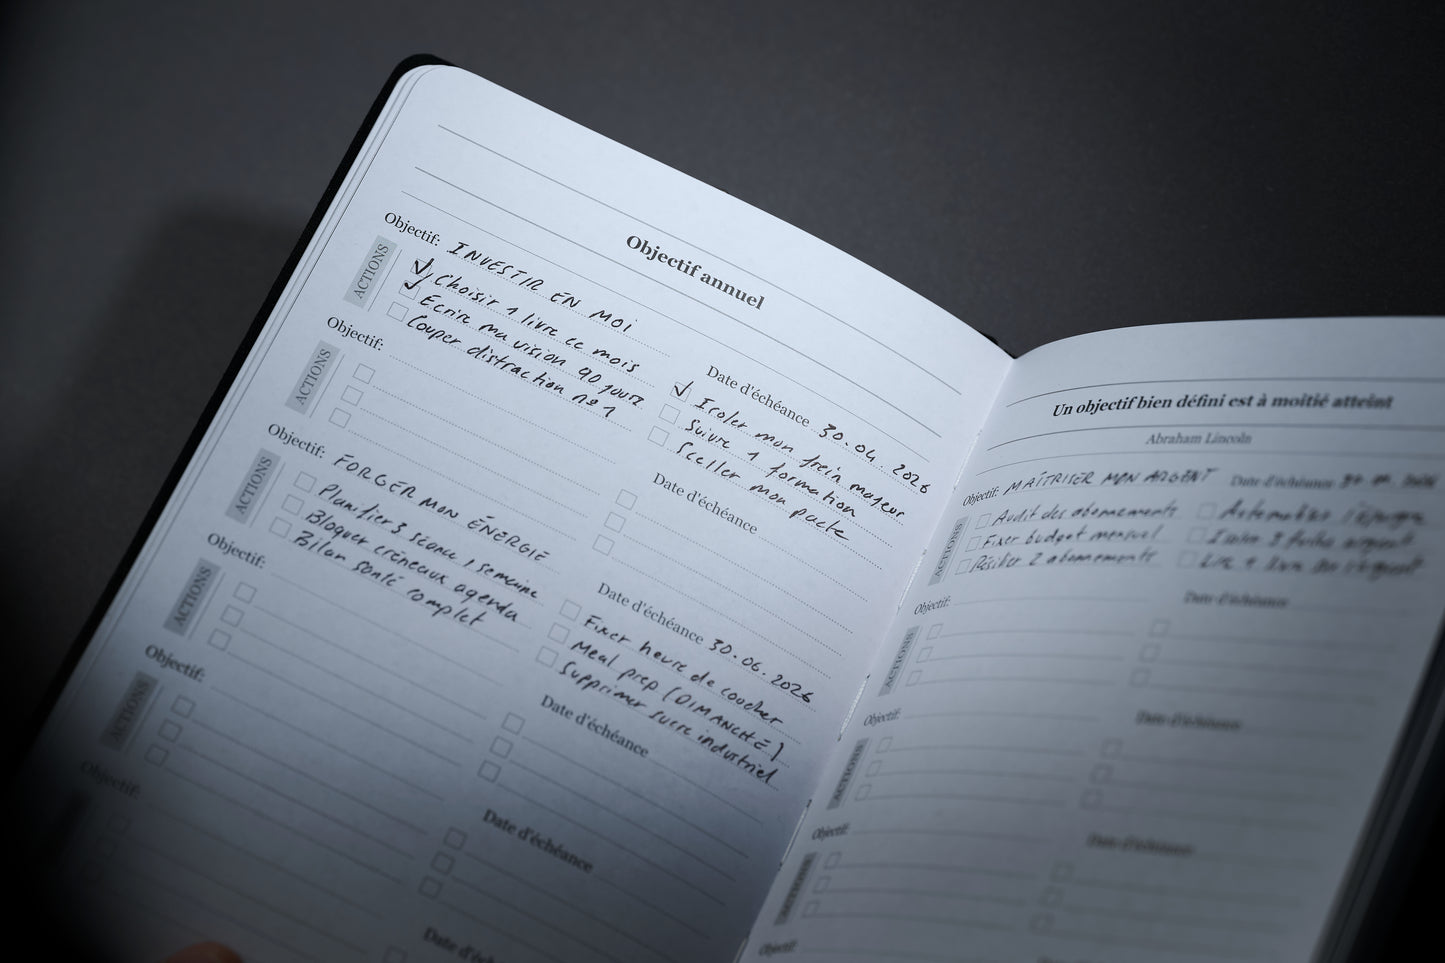 Objectif annuel
Objectif: INVESTIR EN MOI
Date d'échéance 30.04.2026
ACTIONS
Choisir 1 livre ce mois
Ecrire ma vision 90 jours
Couper distraction n°1
Isoler mon frein majeur
Suivre 1 formation
Sceller mon pacte
Objectif:
Date d'échéance
ACTIONS
Objectif: FORGER MON ÉNERGIE
Date d'échéance 30.06.2026
ACTIONS
Planifier 3 séance /semaine
Bloquer créneaux agenda
Bilan santé complet
Fixer heure de coucher
Meal prep (DIMANCHE)
Supprimer sucre industriel
Objectif:
Date d'échéance
ACTIONS
Objectif:
Date d'échéance
ACTIONS
Objectif:
Date d'échéance
Un objectif bien défini est à moitié atteint
Abraham Lincoln
Objectif: MAÎTRISER MON ARGENT
Date d'échéance
ACTIONS
Audit des abonnements
Fixer budget mensuel
Résilier 2 abonnements
Automatiser l'épargne
Objectif:
Date d'échéance
ACTIONS
Objectif:
Date d'échéance
ACTIONS
Objectif:
Date d'échéance
ACTIONS
Objectif: